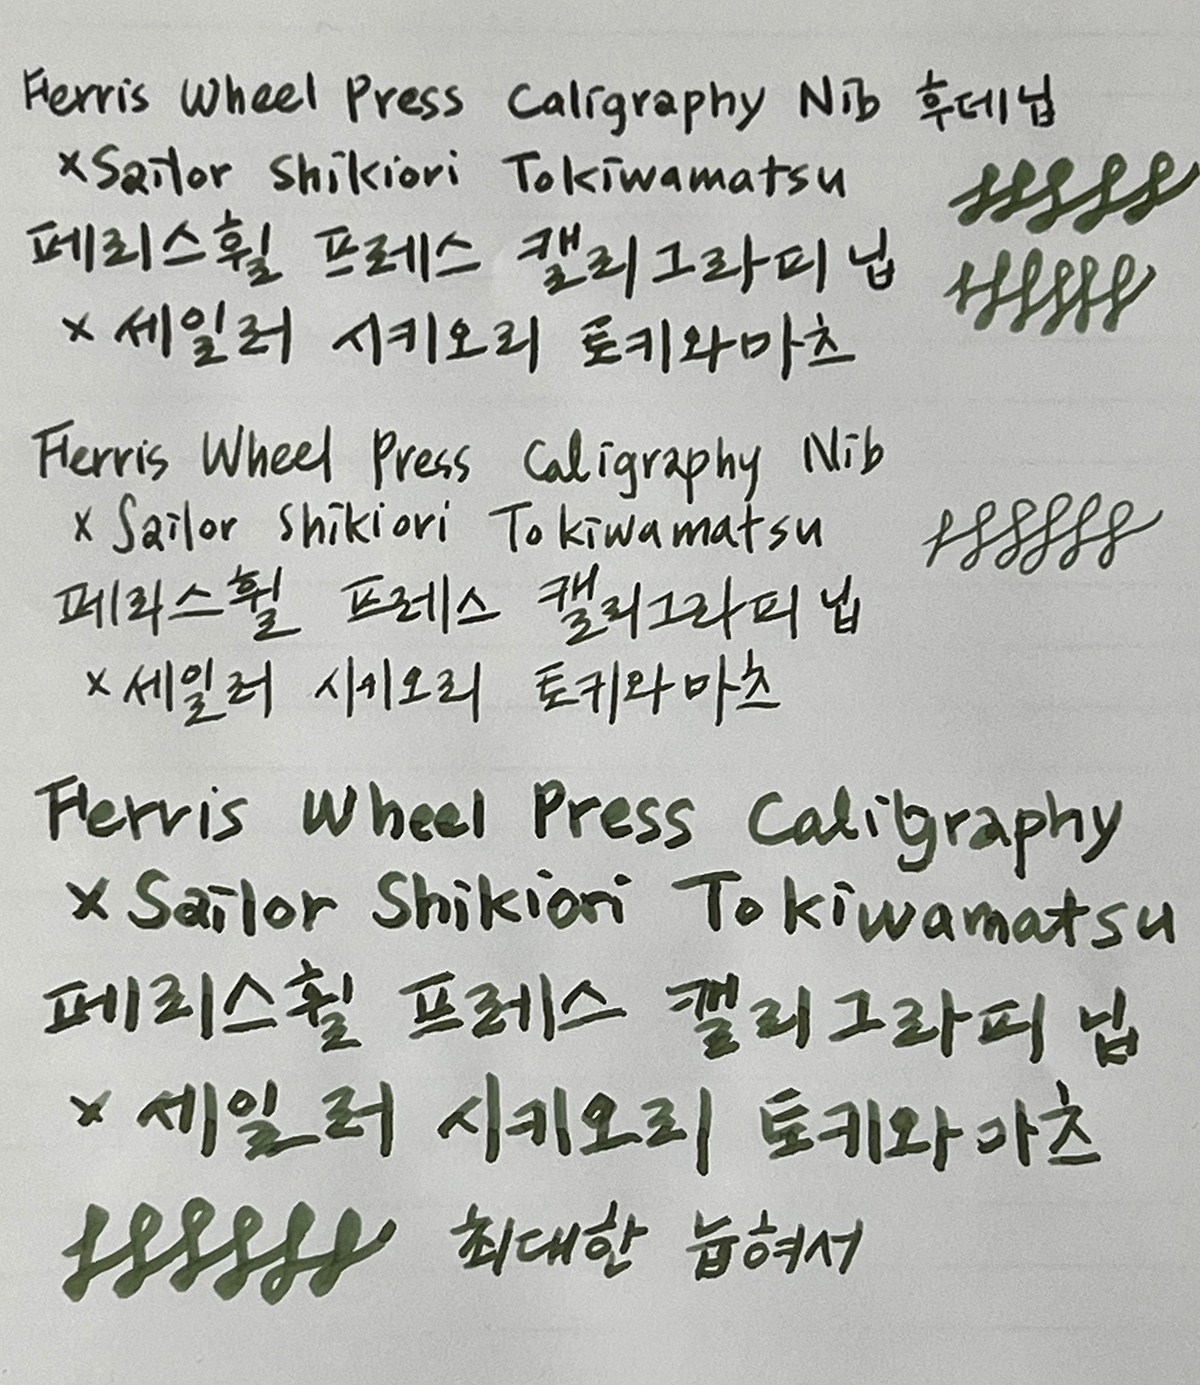 Ferris Wheel Press Caligraphy Nib 후데닙
x Sailor Shikiori Tokiwamatsu
페리스휠 프레스 캘리그라피 닙
x 세일러 시키오리 토키와마츠
Ferris Wheel Press Caligraphy Nib
x Sailor Shikiori Tokiwamatsu
페리스휠 프레스 캘리그라피 닙
x 세일러 시키오리 토키와마츠
Ferris Wheel Press Caligraphy
x Sailor Shikiori Tokiwamatsu
페리스휠 프레스 캘리그라피 닙
x 세일러 시키오리 토키와마츠
최대한 눕혀서